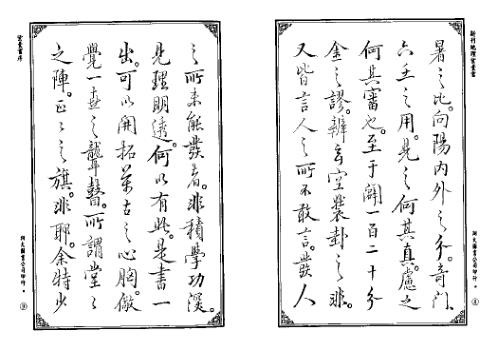 暑之比。向陽內外之分。奇門
六壬之用。見之何其真。慮之
何其審也。至于闢一百二十分
金之謬。辨玄空裝卦之非。
又皆言人之所不敢言。發人
之所未能發者。非積學功深。
見理明透。何以有此。是書一
出。可以開拓萬古之心胸。儆
覺一世之聾瞽。所謂堂々
之陣。正々之旗。非耶。余特少